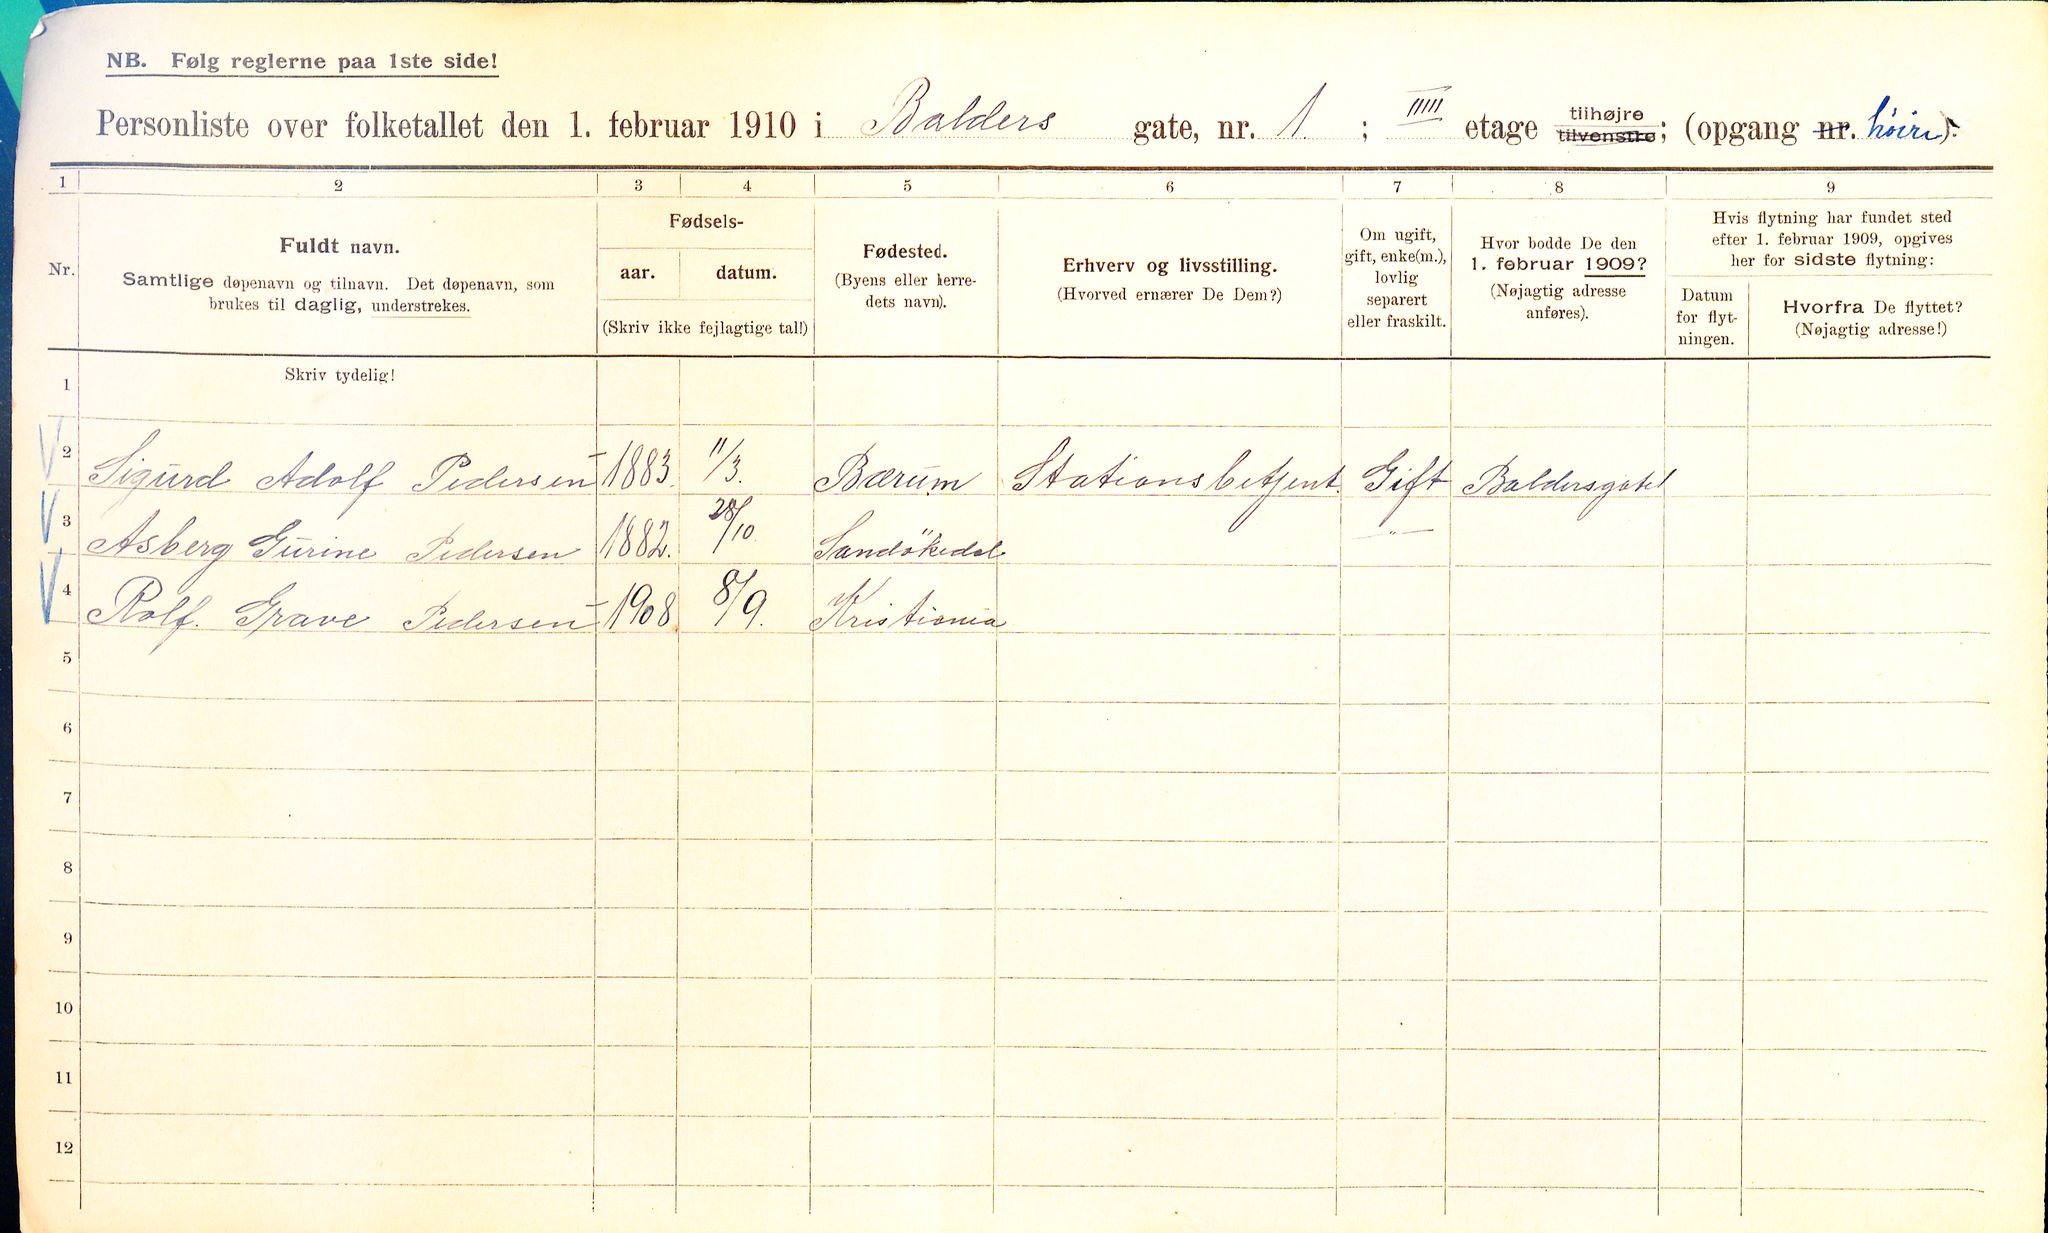 NB. Følg reglerne paa 1ste side!
Personliste over folketallet den 1. februar 1910 i Balders gate, nr. 1 ; IIIII etage tilhøjre tilvenstre; (opgang nr. høire).
1 2 3 4 5 6 7 8 9
Nr.
Fuldt navn.
Samtlige døpenavn og tilnavn. Det døpenavn, som
brukes til daglig, understrekes.
Fødsels-
aar. datum.
(Skriv ikke fejlagtige tal!)
Fødested.
(Byens eller herre-
dets navn).
Erhverv og livsstilling.
(Hvorved ernærer De Dem?)
Om ugift,
gift, enke(m.),
lovlig
separert
eller fraskilt.
Hvor bodde De den
1. februar 1909?
(Nøjagtig adresse
anføres).
Hvis flytning har fundet sted
efter 1. februar 1909, opgives
her for sidste flytning:
Datum
for flyt-
ningen.
Hvorfra De flyttet?
(Nøjagtig adresse!)
1 Skriv tydelig!
2 Sigurd Adolf Pedersen 1883. 11/3. Bærum Stationsbetjent. Gift Baldersgate 1
3 Asberg Gurine Pedersen 1882. 28/10. Sandökedal -"-
4 Rolf. Grave Pedersen 1908 8/9. Kristiania
5
6
7
8
9
10
11
12